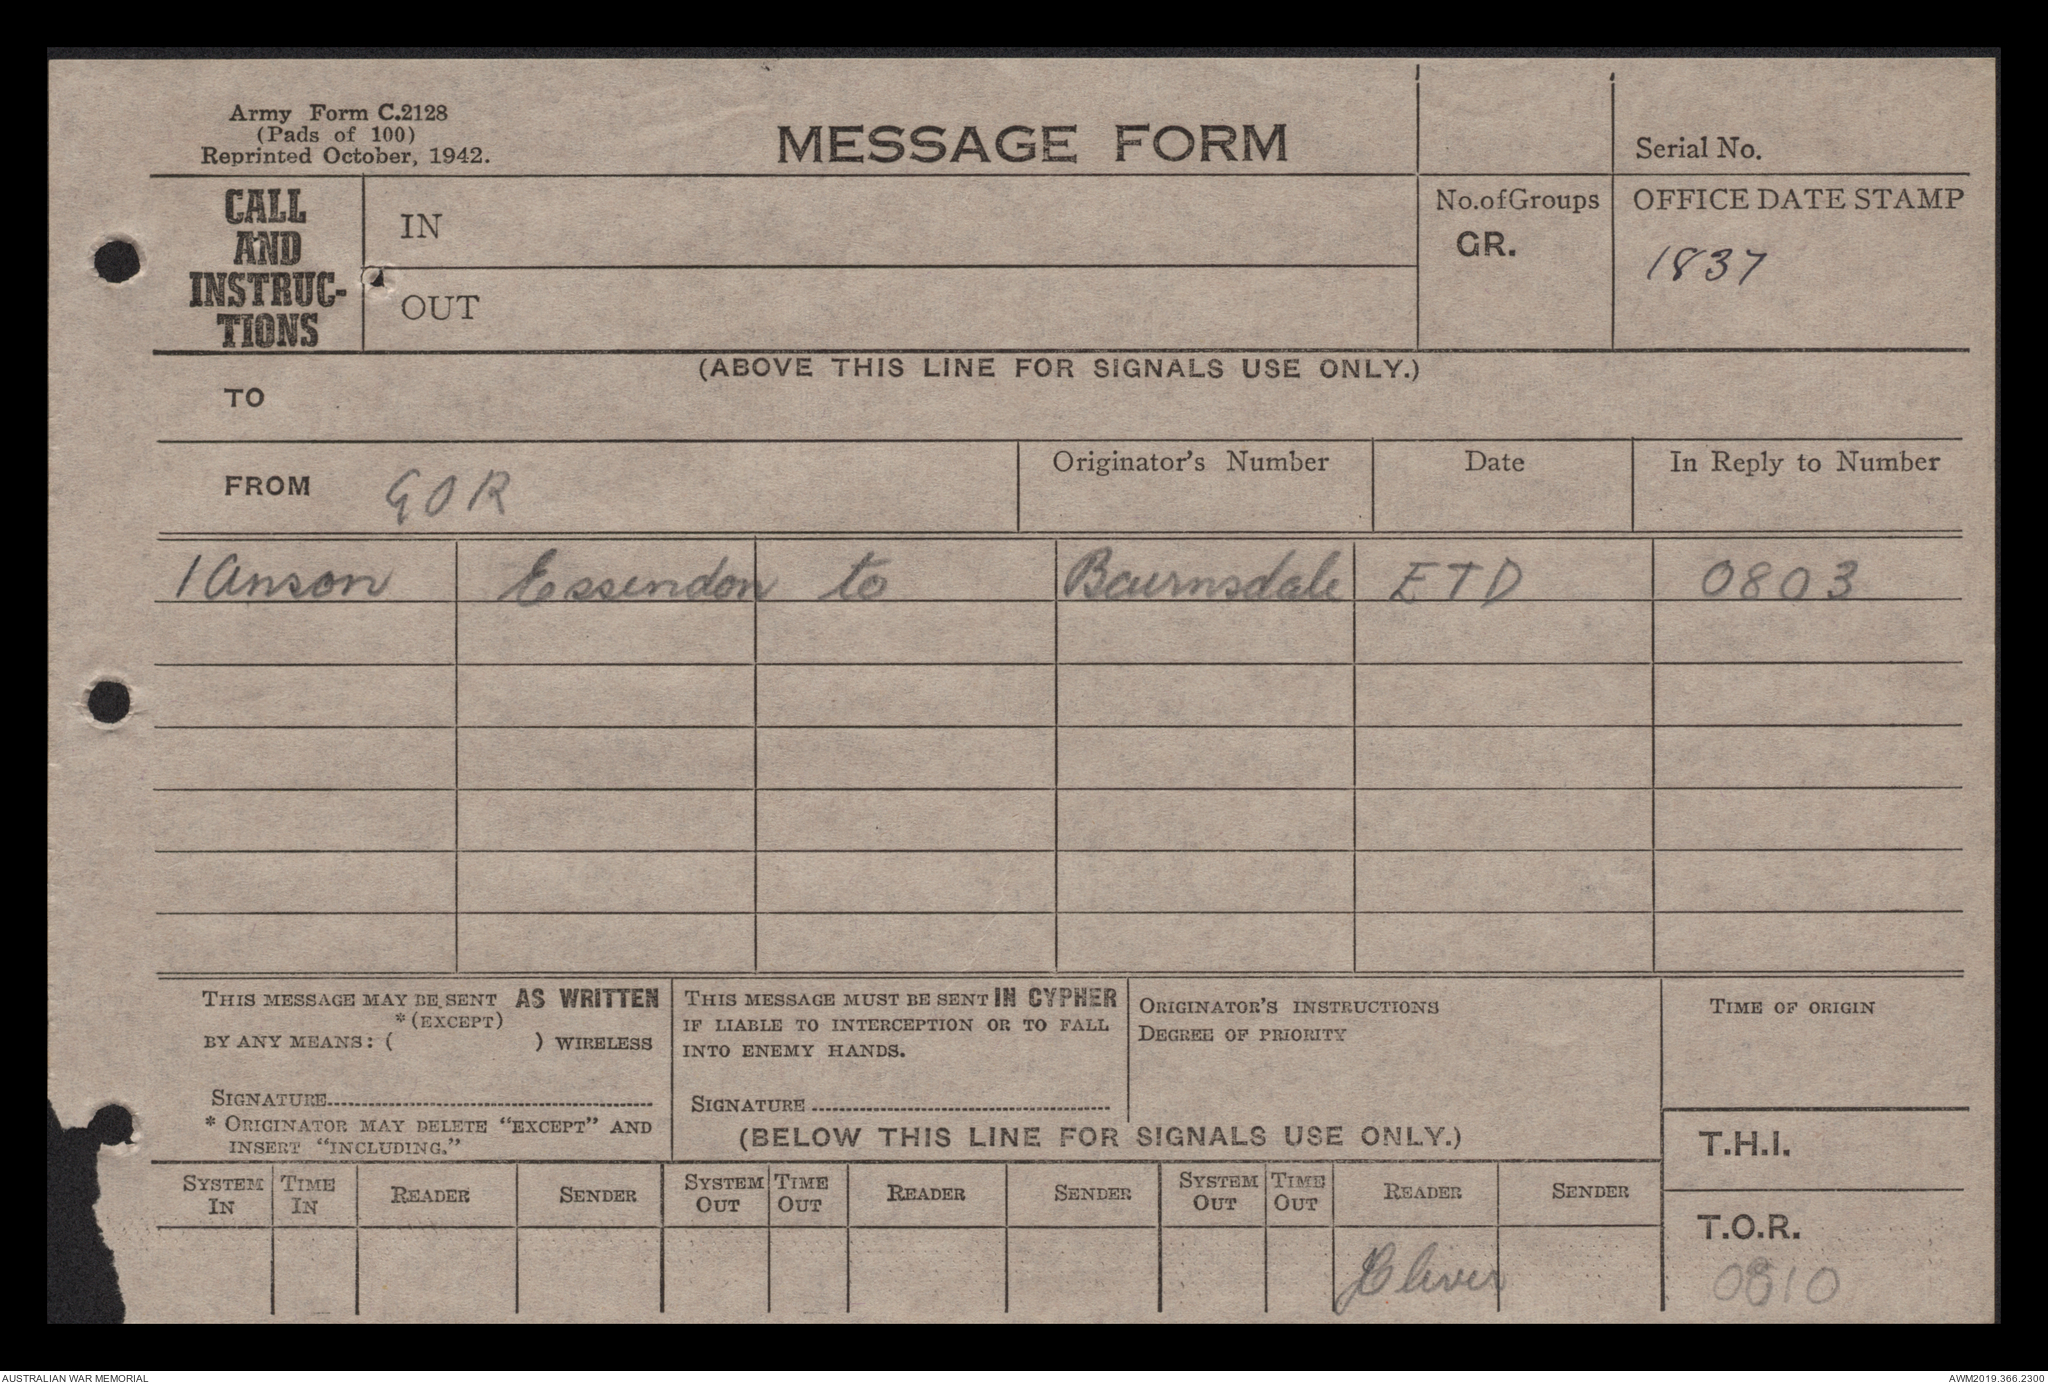 Army Form C.2128
(Pads of 100)
Reprinted October, 1942.
MESSAGE FORM
Serial No.
CALL
AND
INSTRUC-
TIONS
IN
OUT
No.ofGroups
GR.
OFFICE DATE STAMP
1837
(ABOVE THIS LINE FOR SIGNALS USE ONLY.)
TO
FROM GOR
Originator's Number
Date
In Reply to Number
1 Anson Essendon to Bairnsdale ETD 0803
THIS MESSAGE MAY BE SENT AS WRITTEN
*(EXCEPT)
BY ANY MEANS: ( ) WIRELESS
SIGNATURE
* ORIGINATOR MAY DELETE "EXCEPT" AND
INSERT "INCLUDING."
THIS MESSAGE MUST BE SENT IN CYPHER
IF LIABLE TO INTERCEPTION OR TO FALL
INTO ENEMY HANDS.
SIGNATURE
ORIGINATOR'S INSTRUCTIONS
DEGREE OF PRIORITY
TIME OF ORIGIN
(BELOW THIS LINE FOR SIGNALS USE ONLY.)
T.H.I.
SYSTEM IN TIME IN READER SENDER SYSTEM OUT TIME OUT READER SENDER SYSTEM OUT TIME OUT READER SENDER
T.O.R.
0810
AUSTRALIAN WAR MEMORIAL
AWM2019.366.2300